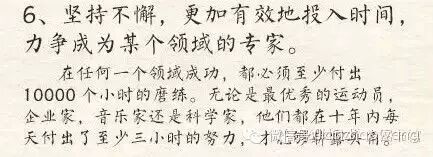 6、坚持不懈，更加有效地投入时间，
力争成为某个领域的专家。
在任何一个领域成功，都必须至少付出
10000个小时的磨练。无论是最优秀的运动员，
企业家，音乐家还是科学家，他们都在十年内每
天付出了至少三小时的努力，才能够崭露头角。